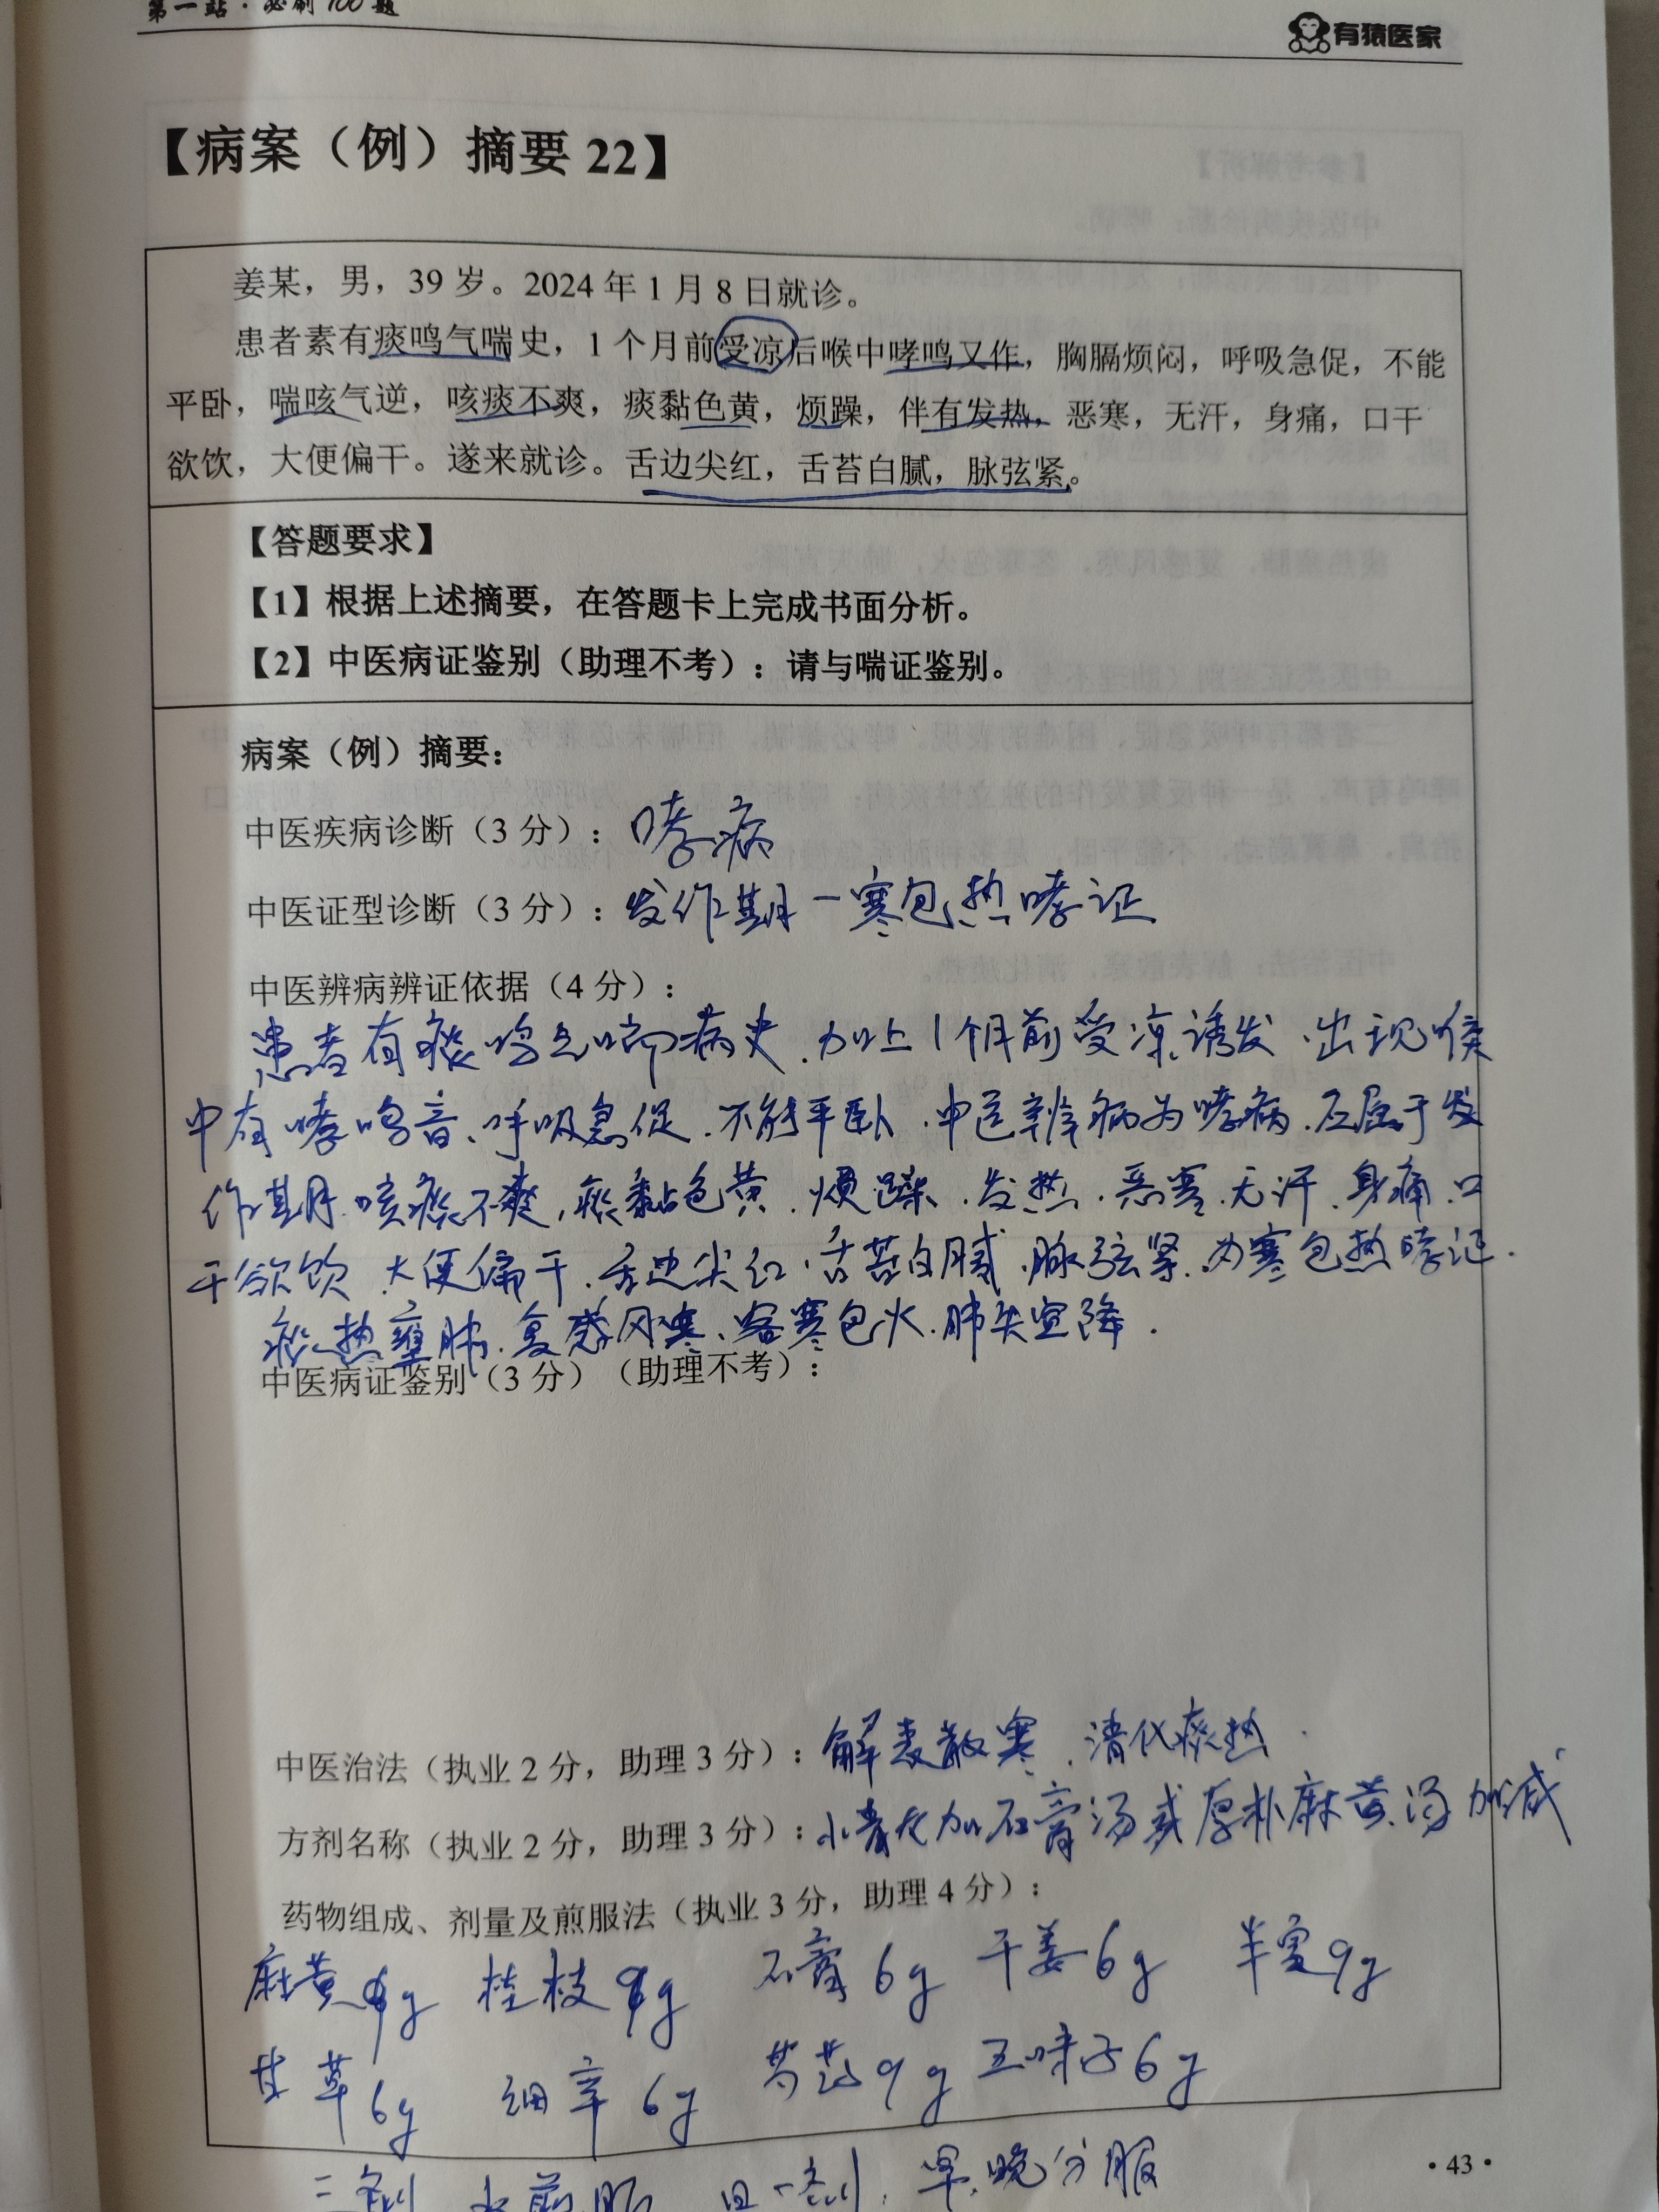 第一站·必刷100题
有猿医家
【病案（例）摘要22】
姜某，男，39岁。2024年1月8日就诊。
患者素有痰鸣气喘史，1个月前受凉后喉中哮鸣又作，胸膈烦闷，呼吸急促，不能
平卧，喘咳气逆，咳痰不爽，痰黏色黄，烦躁，伴有发热，恶寒，无汗，身痛，口干
欲饮，大便偏干。遂来就诊。舌边尖红，舌苔白腻，脉弦紧。
【答题要求】
【1】根据上述摘要，在答题卡上完成书面分析。
【2】中医病证鉴别（助理不考）：请与喘证鉴别。
病案（例）摘要：
中医疾病诊断（3分）：哮病
中医证型诊断（3分）：发作期－寒包热哮证
中医辨病辨证依据（4分）：
患者有痰鸣气喘病史，加上1个月前受凉诱发，出现喉
中有哮鸣音、呼吸急促，不能平卧，中医辨病为哮病，且属于发
作期，咳痰不爽，痰黏色黄，烦躁，发热，恶寒，无汗，身痛，口
干欲饮，大便偏干，舌边尖红，舌苔白腻，脉弦紧，为寒包热哮证．
痰热壅肺，复感风寒、客寒包火，肺失宣降．
中医病证鉴别（3分）（助理不考）：
中医治法（执业2分，助理3分）：解表散寒，清化痰热．
方剂名称（执业2分，助理3分）：小青龙加石膏汤或厚朴麻黄汤加减
药物组成、剂量及煎服法（执业3分，助理4分）：
麻黄 g 桂枝9g 石膏6g 干姜6g 半夏9g
甘草6g 细辛6g 芍药9g 五味子6g
三剂 水煎服 日一剂，早晚分服
·43·